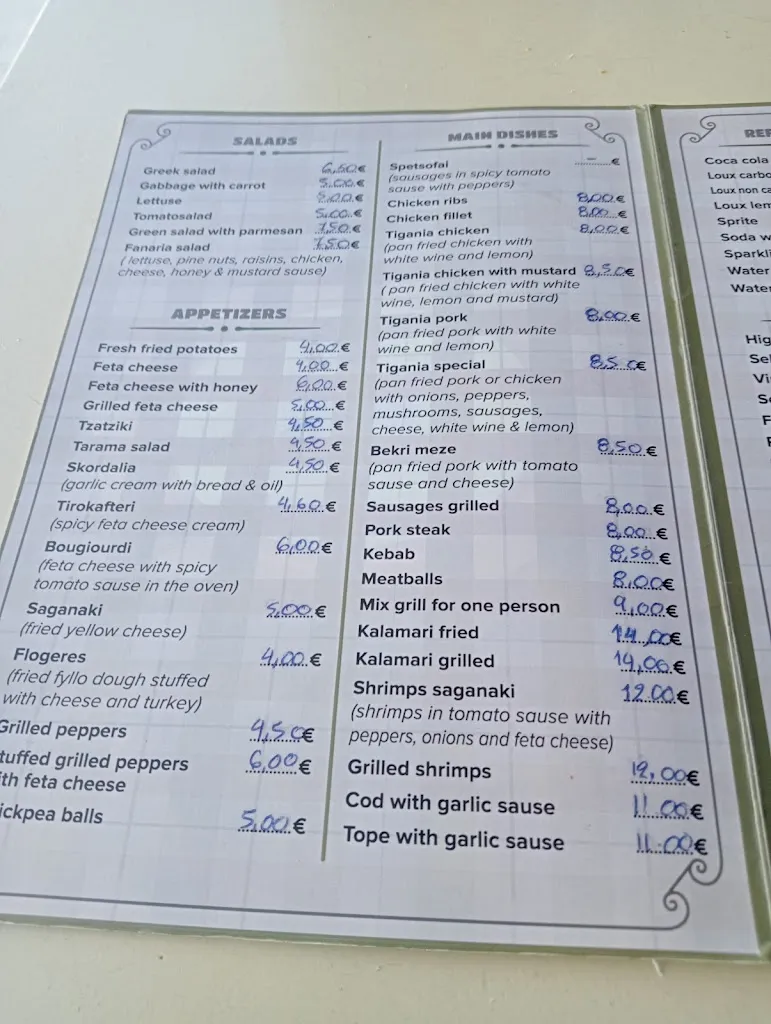 SALADS
Greek salad 6,50 €
Gabbage with carrot 5,00 €
Lettuse 5,00 €
Tomatosalad 5,00 €
Green salad with parmesan 7,50 €
Fanaria salad 7,50 €
( lettuse, pine nuts, raisins, chicken,
cheese, honey & mustard sause)
APPETIZERS
Fresh fried potatoes 4,00 €
Feta cheese 4,00 €
Feta cheese with honey 6,00 €
Grilled feta cheese 5,00 €
Tzatziki 4,50 €
Tarama salad 4,50 €
Skordalia 4,50 €
(garlic cream with bread & oil)
Tirokafteri 4,60 €
(spicy feta cheese cream)
Bougiourdi 6,00 €
(feta cheese with spicy
tomato sause in the oven)
Saganaki 5,00 €
(fried yellow cheese)
Flogeres 4,00 €
(fried fyllo dough stuffed
with cheese and turkey)
Grilled peppers 4,50 €
tuffed grilled peppers 6,00 €
ith feta cheese
ickpea balls 5,00 €
MAIN DISHES
Spetsofai – €
(sausages in spicy tomato
sause with peppers)
Chicken ribs 8,00 €
Chicken fillet 8,00 €
Tigania chicken 8,00 €
(pan fried chicken with
white wine and lemon)
Tigania chicken with mustard 8,50 €
( pan fried chicken with white
wine, lemon and mustard)
Tigania pork 8,00 €
(pan fried pork with white
wine and lemon)
Tigania special 8,50 €
(pan fried pork or chicken
with onions, peppers,
mushrooms, sausages,
cheese, white wine & lemon)
Bekri meze 8,50 €
(pan fried pork with tomato
sause and cheese)
Sausages grilled 8,00 €
Pork steak 8,00 €
Kebab 8,50 €
Meatballs 8,00 €
Mix grill for one person 9,00 €
Kalamari fried 14,00 €
Kalamari grilled 14,00 €
Shrimps saganaki 12.00 €
(shrimps in tomato sause with
peppers, onions and feta cheese)
Grilled shrimps 12,00 €
Cod with garlic sause 11.00 €
Tope with garlic sause 11.00 €
REF
Coca cola
Loux carbo
Loux non ca
Loux lem
Sprite
Soda w
Sparkli
Water
Water
Hig
Sel
Vi
S
F